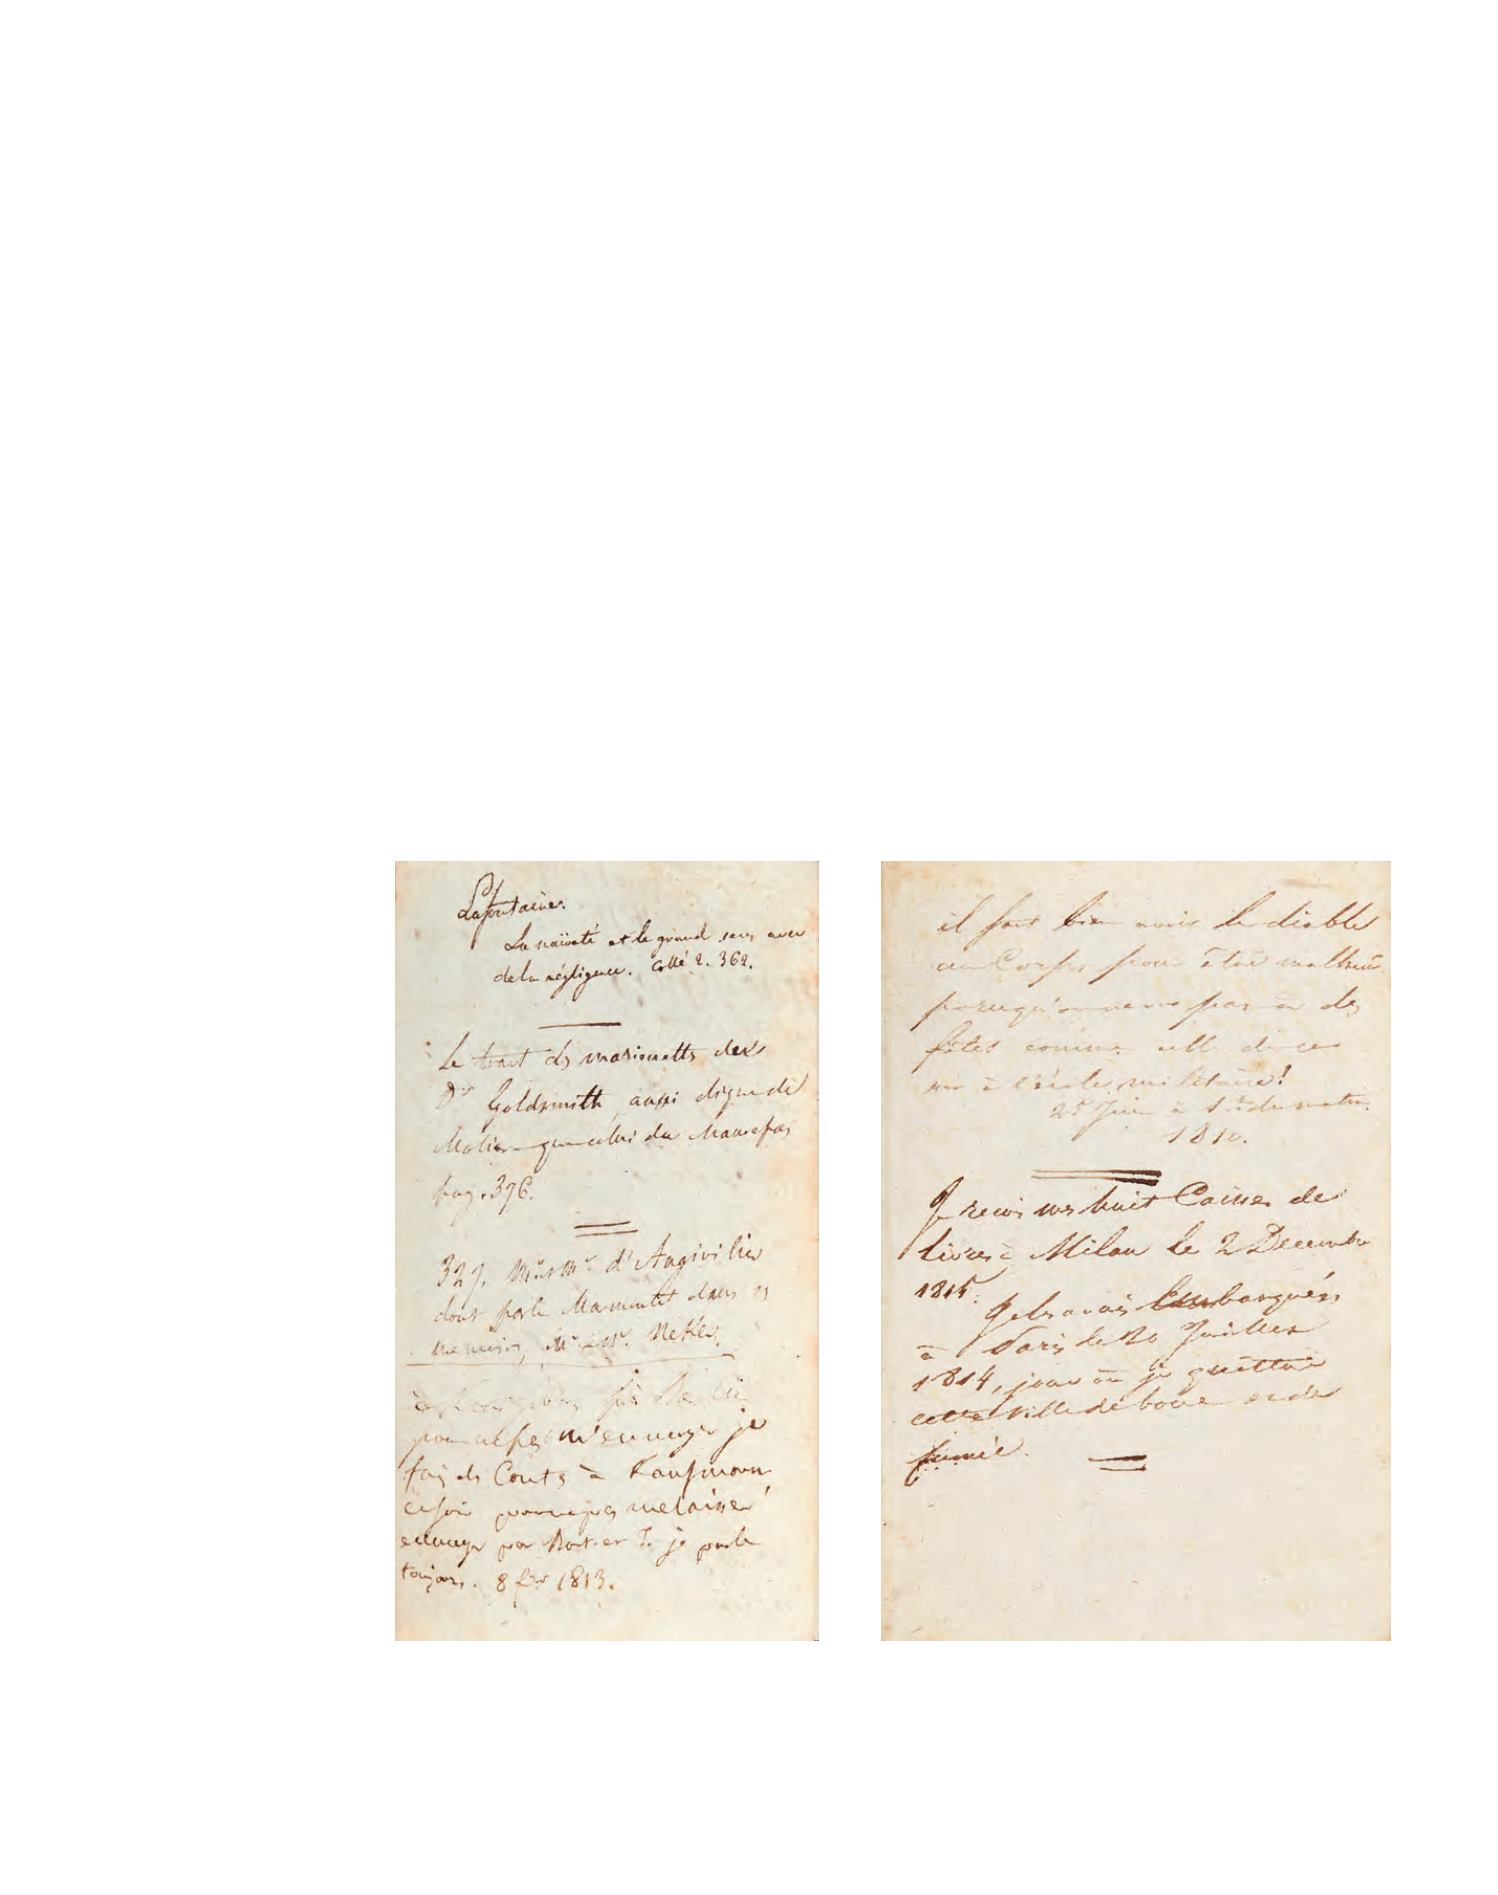 Lafontaine.
La naïveté et le grand sens avec
de la négligence. Collé 2. 362.
Le trait des marionetts de
Dr Goldsmith, aussi digne de
Molière que celui du Maurefas
pag. 376.
327. d'Angivilier
dont parle Marmontel dans ses
memoires, Neker.
pour ne pas m'ennuyer je
fais des Conts à Kaufmann
ce soir pour ne pas me laisser
ennuyer par je parle
toujours. 8 fer 1813.
il faut bien avoir le diable
au Corps pour être malheur
parcequ'on ne va pas à des
fêtes comme celle de ce
soir à l'école militaire!
25 Juin à 1 h du matin.
1810.
Je reçois mes huit Caisses de
livres à Milan le 2 Decembre
1815.
Je les avais embarquées
à Paris le 20 Juillet
1814, jour où je quittai
cette ville de boue et de
fumée.